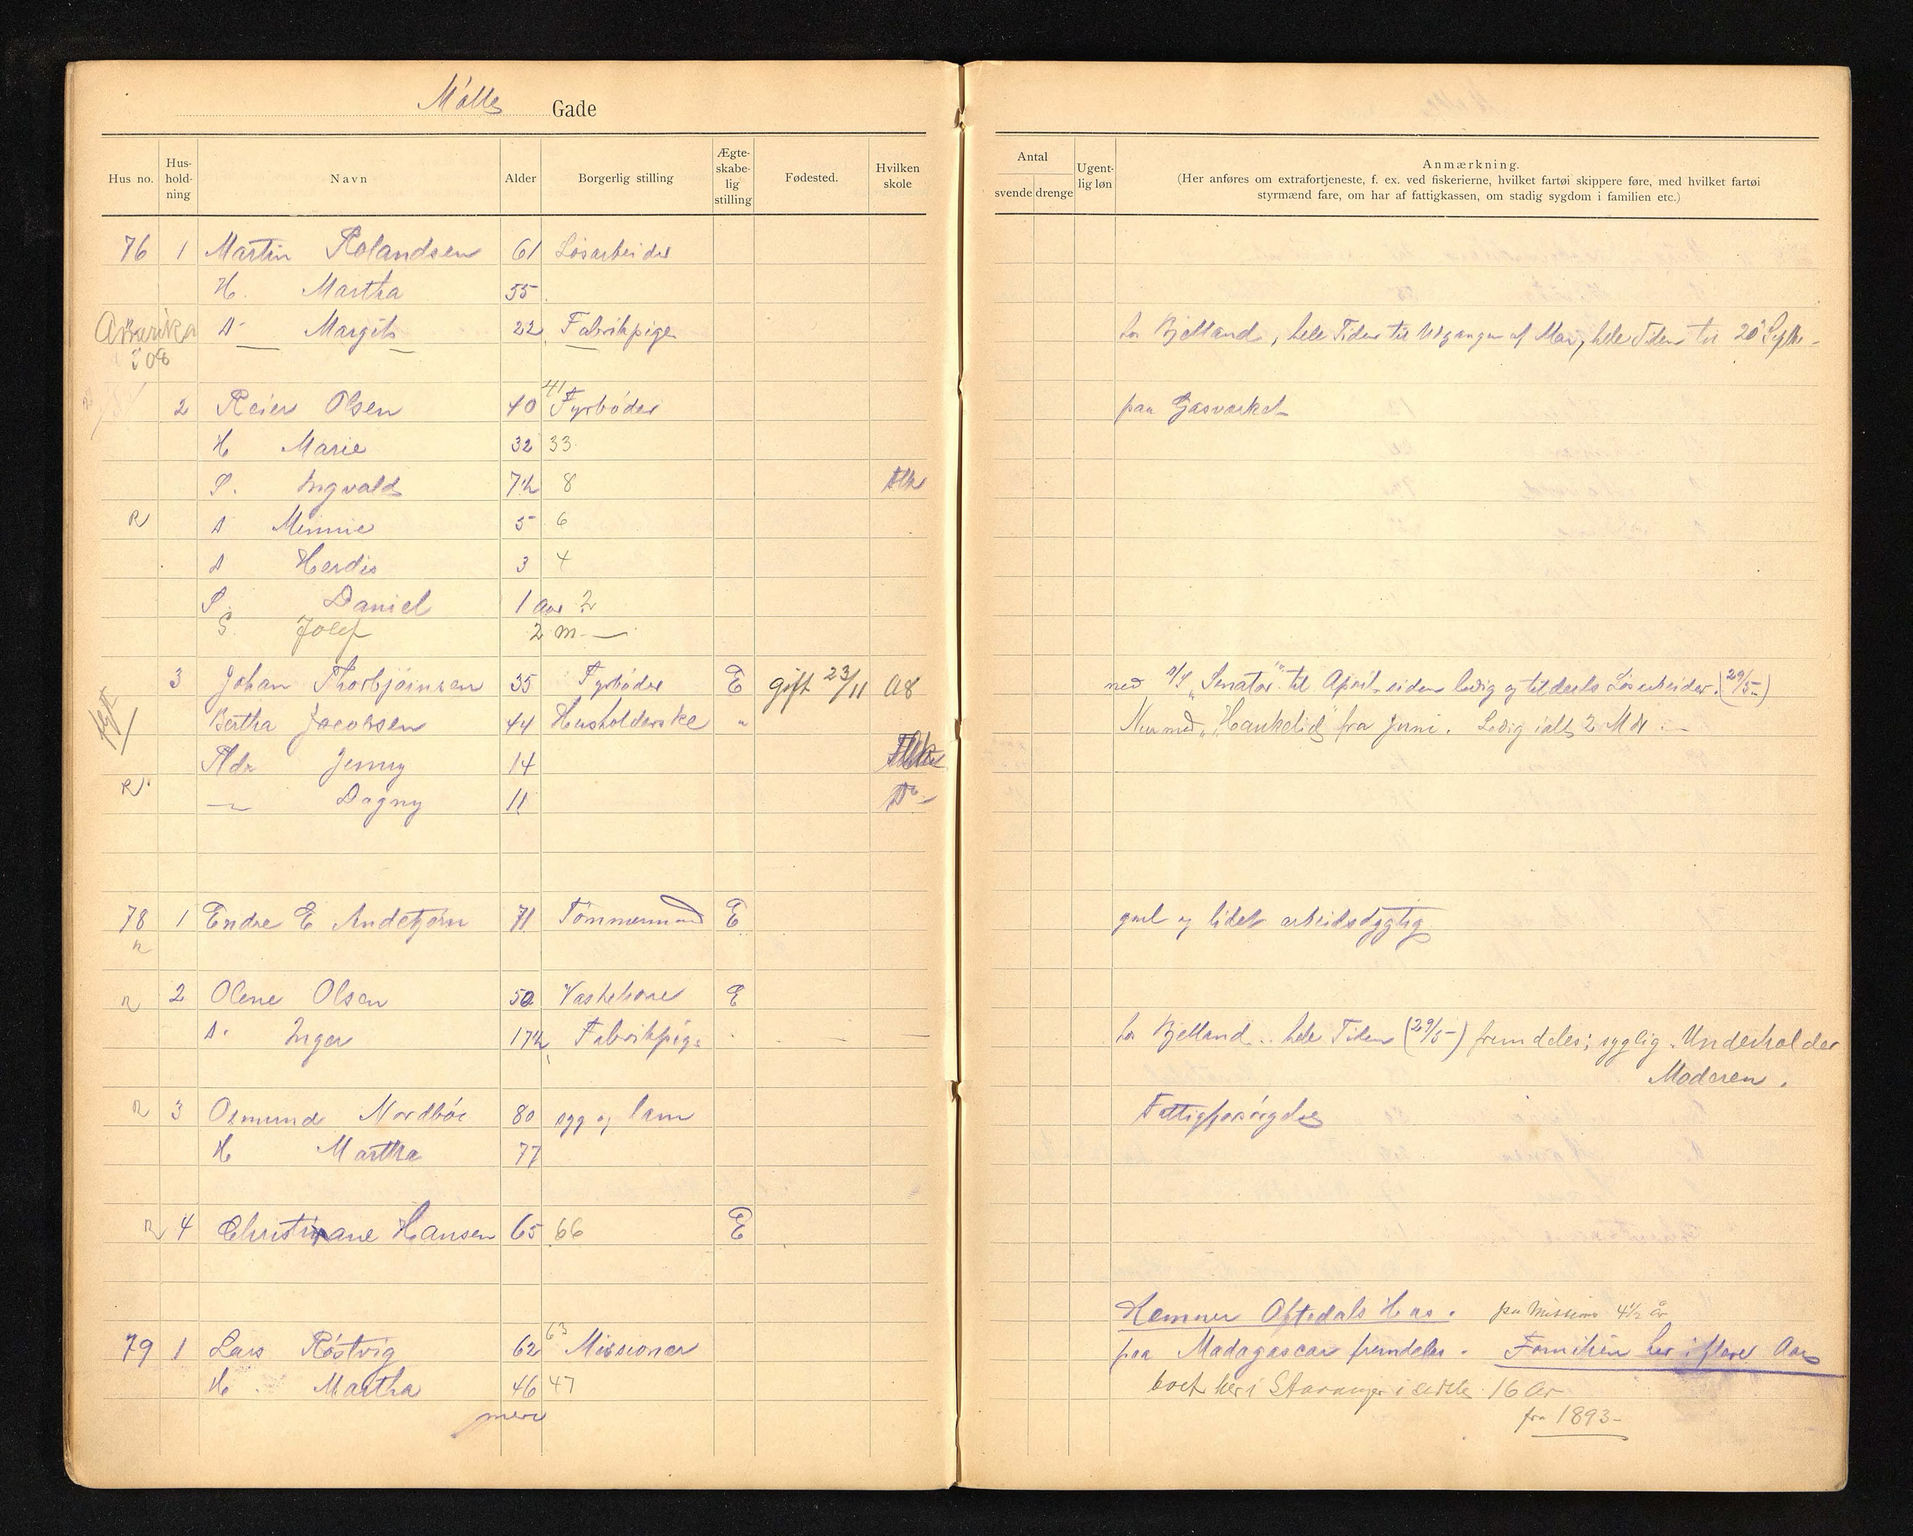 Mølle Gade
Hus no. Hus-hold-ning Navn Alder Borgerlig stilling Ægte-skabe-lig stilling Fødested. Hvilken skole
Antal svende drenge Ugent-lig løn Anmærkning.
(Her anføres om extrafortjeneste, f. ex. ved fiskerierne, hvilket fartøi skippere føre, med hvilket fartøi
styrmænd fare, om har af fattigkassen, om stadig sygdom i familien etc.)
76 1 Martin Rolandsen 61 Løsarbeider
H. Martha 55
Amerika D Margit 22 Fabrikpige hos Bjelland, hele Tiden til Udgangen af Mai, hele Tiden til 20
i 08
2 Reier Olsen 40 41 Fyrbøder paa Gasværket
H Marie 32 33
S. Ingvald 7½ 8
R D Minnie 5 6
D Herdis 3 4
S. Daniel 1 Aar 2
S. Josef 2 m
3 Johan Thorbjørnsen 35 Fyrbøder E gift 23/11 08 med S/S "Senator" til April siden ledig og tildels Løsarbeider. (29/5-)
Bertha Jacobsen 44 Husholderske " Nu med "Haukelid" fra Juni. Ledig ialt 2 Md.
Adr Jenny 14
R. — Dagny 11 Do
78 1 Endre E Andebjørn 71 Tømmermand E gml og lidet arbeidsdygtig
R
R 2 Olene Olsen 50 Vaskekone E
D. Inger 17½ Fabrikpige hos Bjelland.. hele Tiden (29/5-) fremdeles; syglig. Underholder
Moderen.
R 3 Osmund Nordbøe 80 syg og lam Fattigforsørgdes
H Martha 77
R 4 Christiane Hansen 65 66 E
Kemner Oftedals Hus. paa Missions 4½ år
79 1 Lars Røstvig 62 63 Missionær paa Madagascar fremdeles. Familien her i flere Aar
H. Martha 46 47 boet her i Stavanger i 16 År
mere fra 1893-